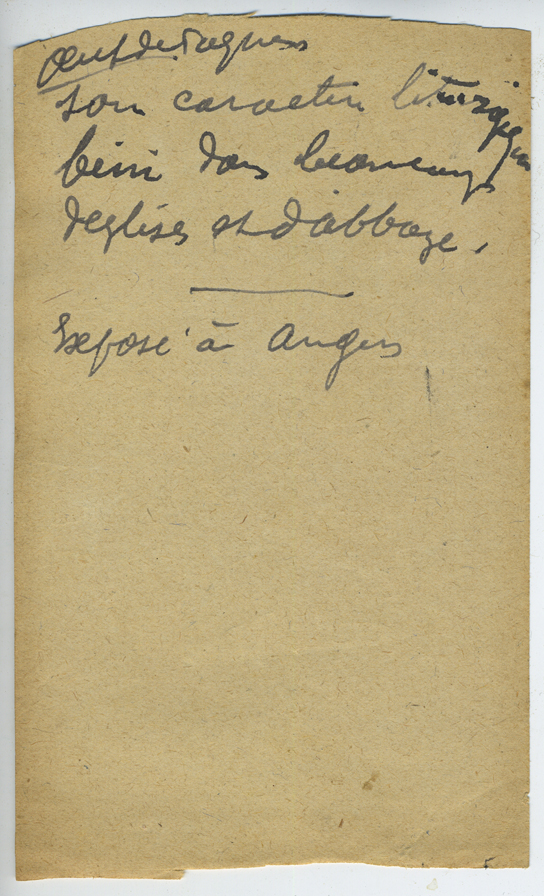 Œuf de Pâques
son caractère liturgique
béni dans beaucoup
d'églises et d'abbaye.
Exposé à Angers